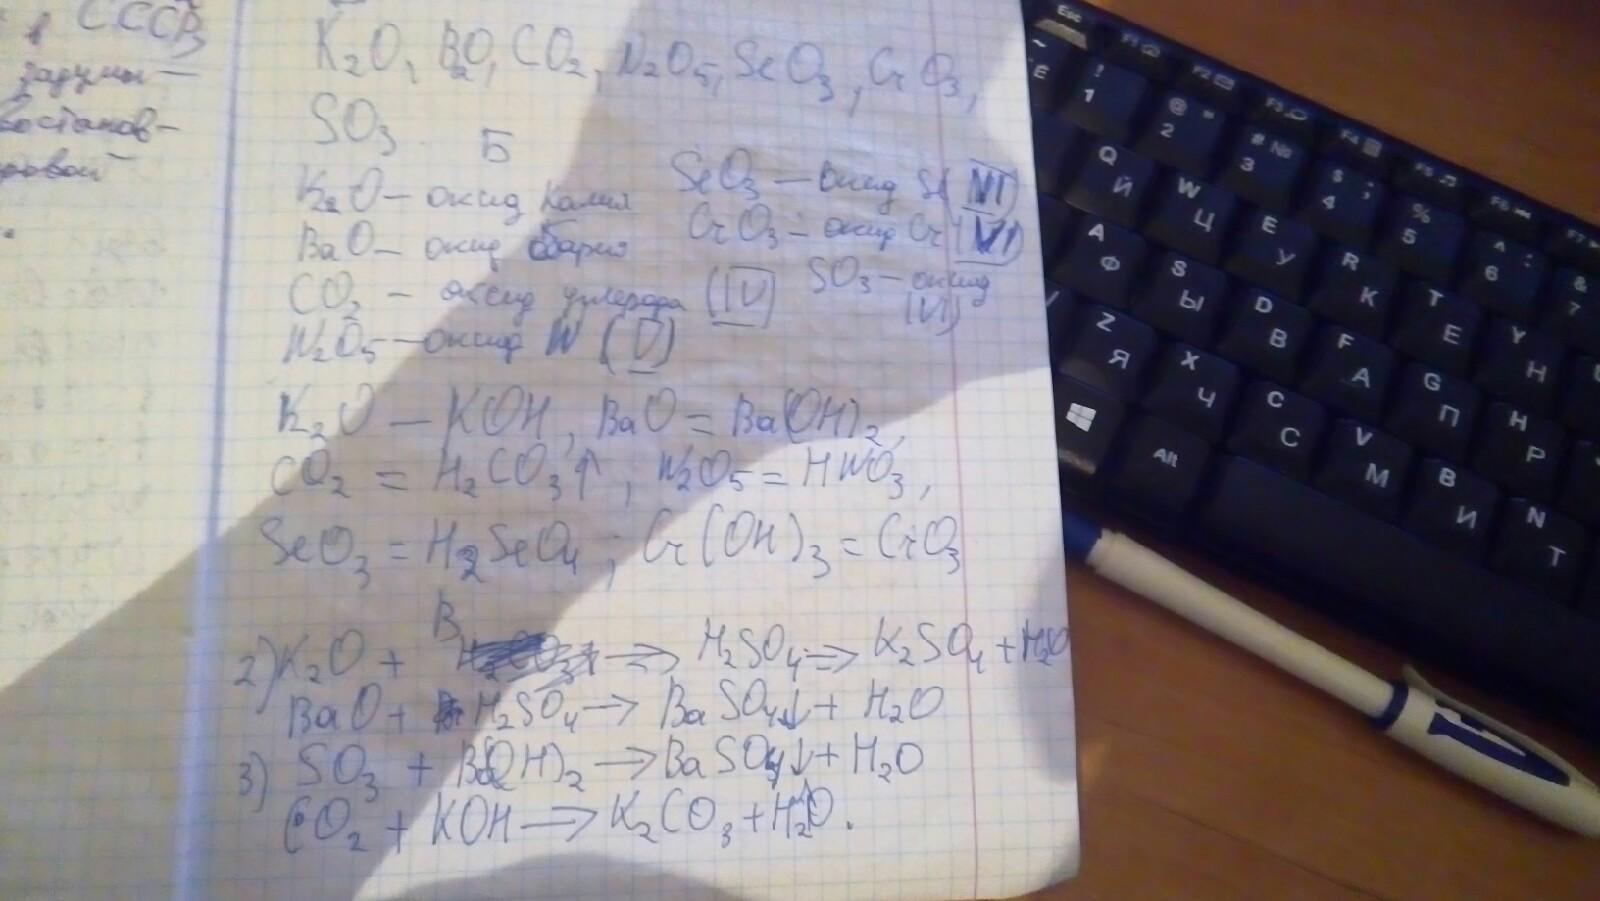 СССР,
задумы-
востанов-
ровой
K₂O, BaO, CO₂, N₂O₅, SeO₃, CrO₃,
SO₃.
Б
K₂O — оксид калия
BaO — оксид бария
CO₂ — оксид углерода (IV)
N₂O₅ — оксид N (V)
SeO₃ — оксид Se (VI)
CrO₃ = оксид Cr (VI)
SO₃ — оксид
(VI)
K₂O — KOH, BaO = Ba(OH)₂,
CO₂ = H₂CO₃↑; N₂O₅ = HNO₃,
SeO₃ = H₂SeO₄; Cr(OH)₃ = CrO₃
В
2) K₂O + => H₂SO₄ => K₂SO₄ + H₂O
BaO + H₂SO₄ → BaSO₄↓ + H₂O
3) SO₃ + Ba(OH)₂ → BaSO₄↓ + H₂O
CO₂ + KOH → K₂CO₃ + H₂O.
Esc
F1
F2
F3
F4
F5
F6
F7
~ Ё
! 1
@ " 2
# № 3
$ ; 4
% 5
^ : 6
& 7
Q Й
W Ц
E У
R К
T Е
Y Н
A Ф
S Ы
D В
F А
G П
H Р
Z Я
X Ч
C С
V М
B И
N Т
Alt